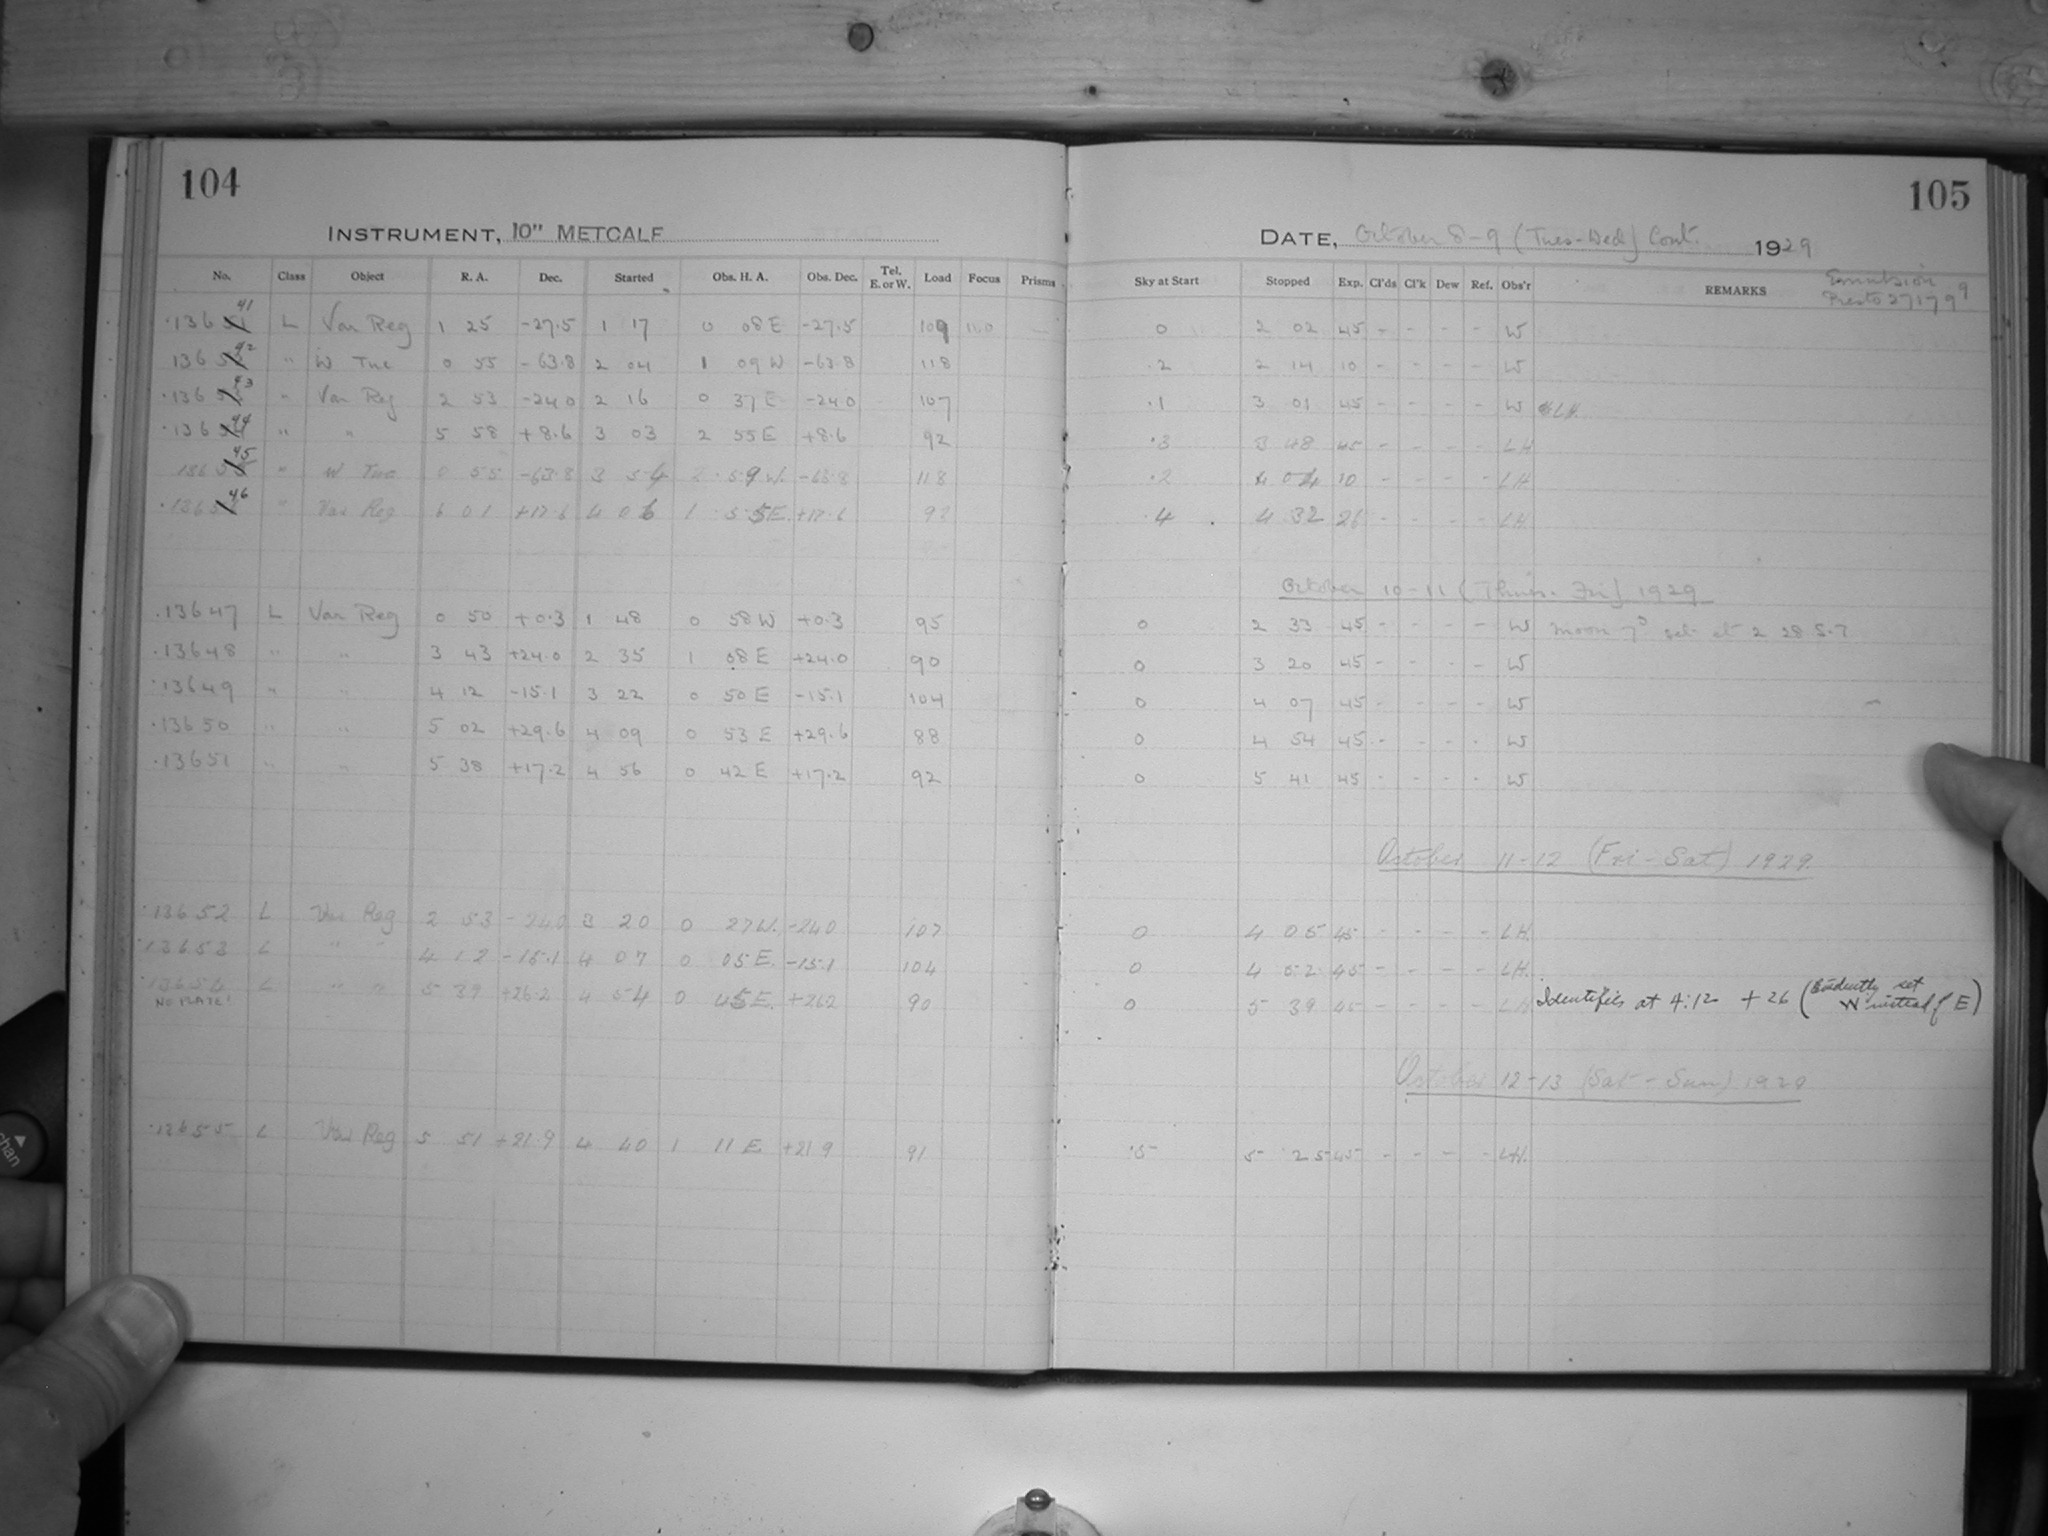 104
INSTRUMENT, 10" METCALF
No. Class Object R. A. Dec. Started Obs. H. A. Obs. Dec. Tel. E. or W. Load Focus Prisms
136 41 L Var Reg 1 25 -27.5 1 17 0 08 E -27.5 109 11.0
136 42 " W Tuc 0 55 -63.8 2 04 1 09 W -63.8 118
136 43 " Var Reg 2 53 -24.0 2 16 0 37 E -24.0 107
136 44 " " 5 58 +8.6 3 03 2 55 E +8.6 92
136 45 " W Tuc 0 55 -63.8 3 54 2 59 W. -63.8 118
136 46 " Var Reg 6 01 +17.6 4 06 1 55 E. +17.6 92
13647 L Var Reg 0 50 +0.3 1 48 0 58 W +0.3 95
13648 " " 3 43 +24.0 2 35 1 08 E +24.0 90
13649 " " 4 12 -15.1 3 22 0 50 E -15.1 104
13650 " " 5 02 +29.6 4 09 0 53 E +29.6 88
13651 " " 5 38 +17.2 4 56 0 42 E +17.2 92
13652 L Var Reg 2 53 -24.0 3 20 0 27 W. -24.0 107
13653 L " " 4 12 -15.1 4 07 0 05 E. -15.1 104
13654 L " " 5 39 +26.2 4 54 0 45 E. +26.2 90
NO PLATE!
13655 L Var Reg 5 51 +21.9 4 40 1 11 E +21.9 91
105
DATE, October 8-9 (Tues-Wed) Cont. 1929
Sky at Start Stopped Exp. Cl'ds Cl'k Dew Ref. Obs'r REMARKS
Emulsion
Presto 27179
0 2 02 45 - - - - W
.2 2 14 10 - - - - W
.1 3 01 45 - - - - W & LH.
.3 3 48 45 - - - - LH
.2 4 04 10 - - - - LH
.4 4 32 26 - - - - LH.
October 10-11 (Thurs-Fri) 1929
0 2 33 45 - - - - W Moon 7° set at 2 28 S.T
0 3 20 45 - - - - W
0 4 07 45 - - - - W
0 4 54 45 - - - - W
0 5 41 45 - - - - W
October 11-12 (Fri-Sat) 1929.
0 4 05 45 - - - - LH.
0 4 52 45 - - - - LH.
0 5 39 45 - - - - LH Identifies at 4:12 +26 (Evidently set W instead of E)
October 12-13 (Sat-Sun) 1929
.5 5 25 45 - - - - LH.